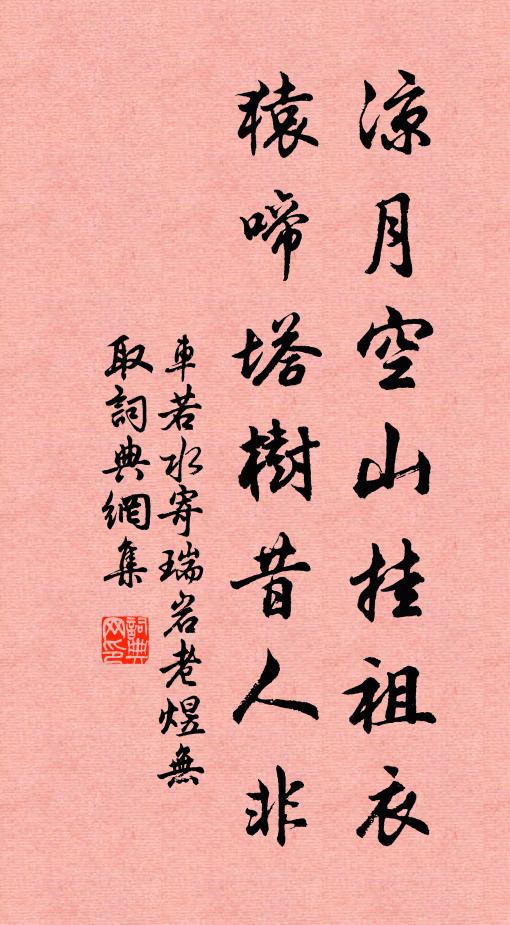 涼月空山挂祖衣
猿啼塔樹昔人非
車若水寄瑞岩老煜無
取詞典網集
詞典网印